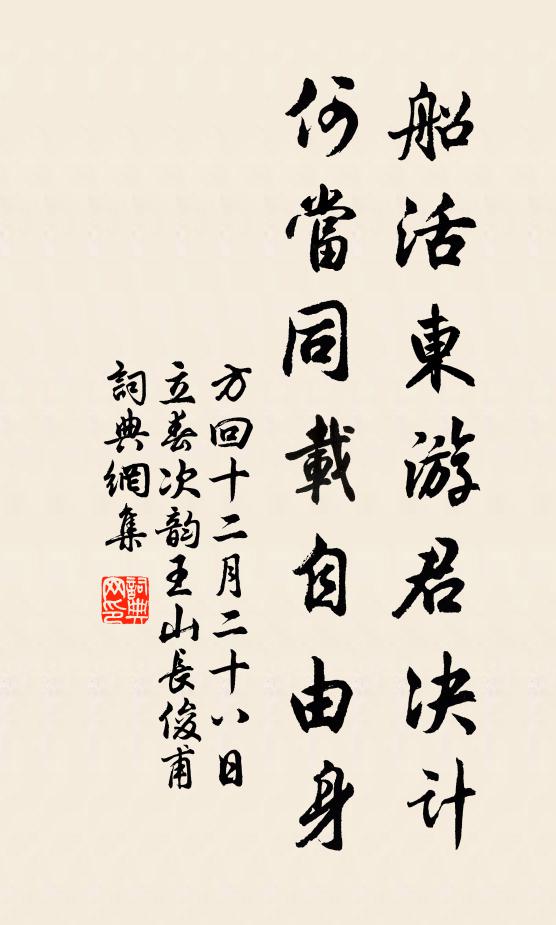 船活東游君決計
何當同載自由身
方回十二月二十八日
立春次韵王山長俊甫
詞典網集
詞典網印